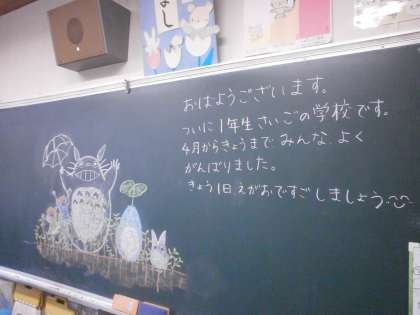 よし
おはようございます。
ついに1年生さいごの学校です。
4月からきょうまで、みんな、よく
がんばりました。
きょう1日、えがおですごしましょう